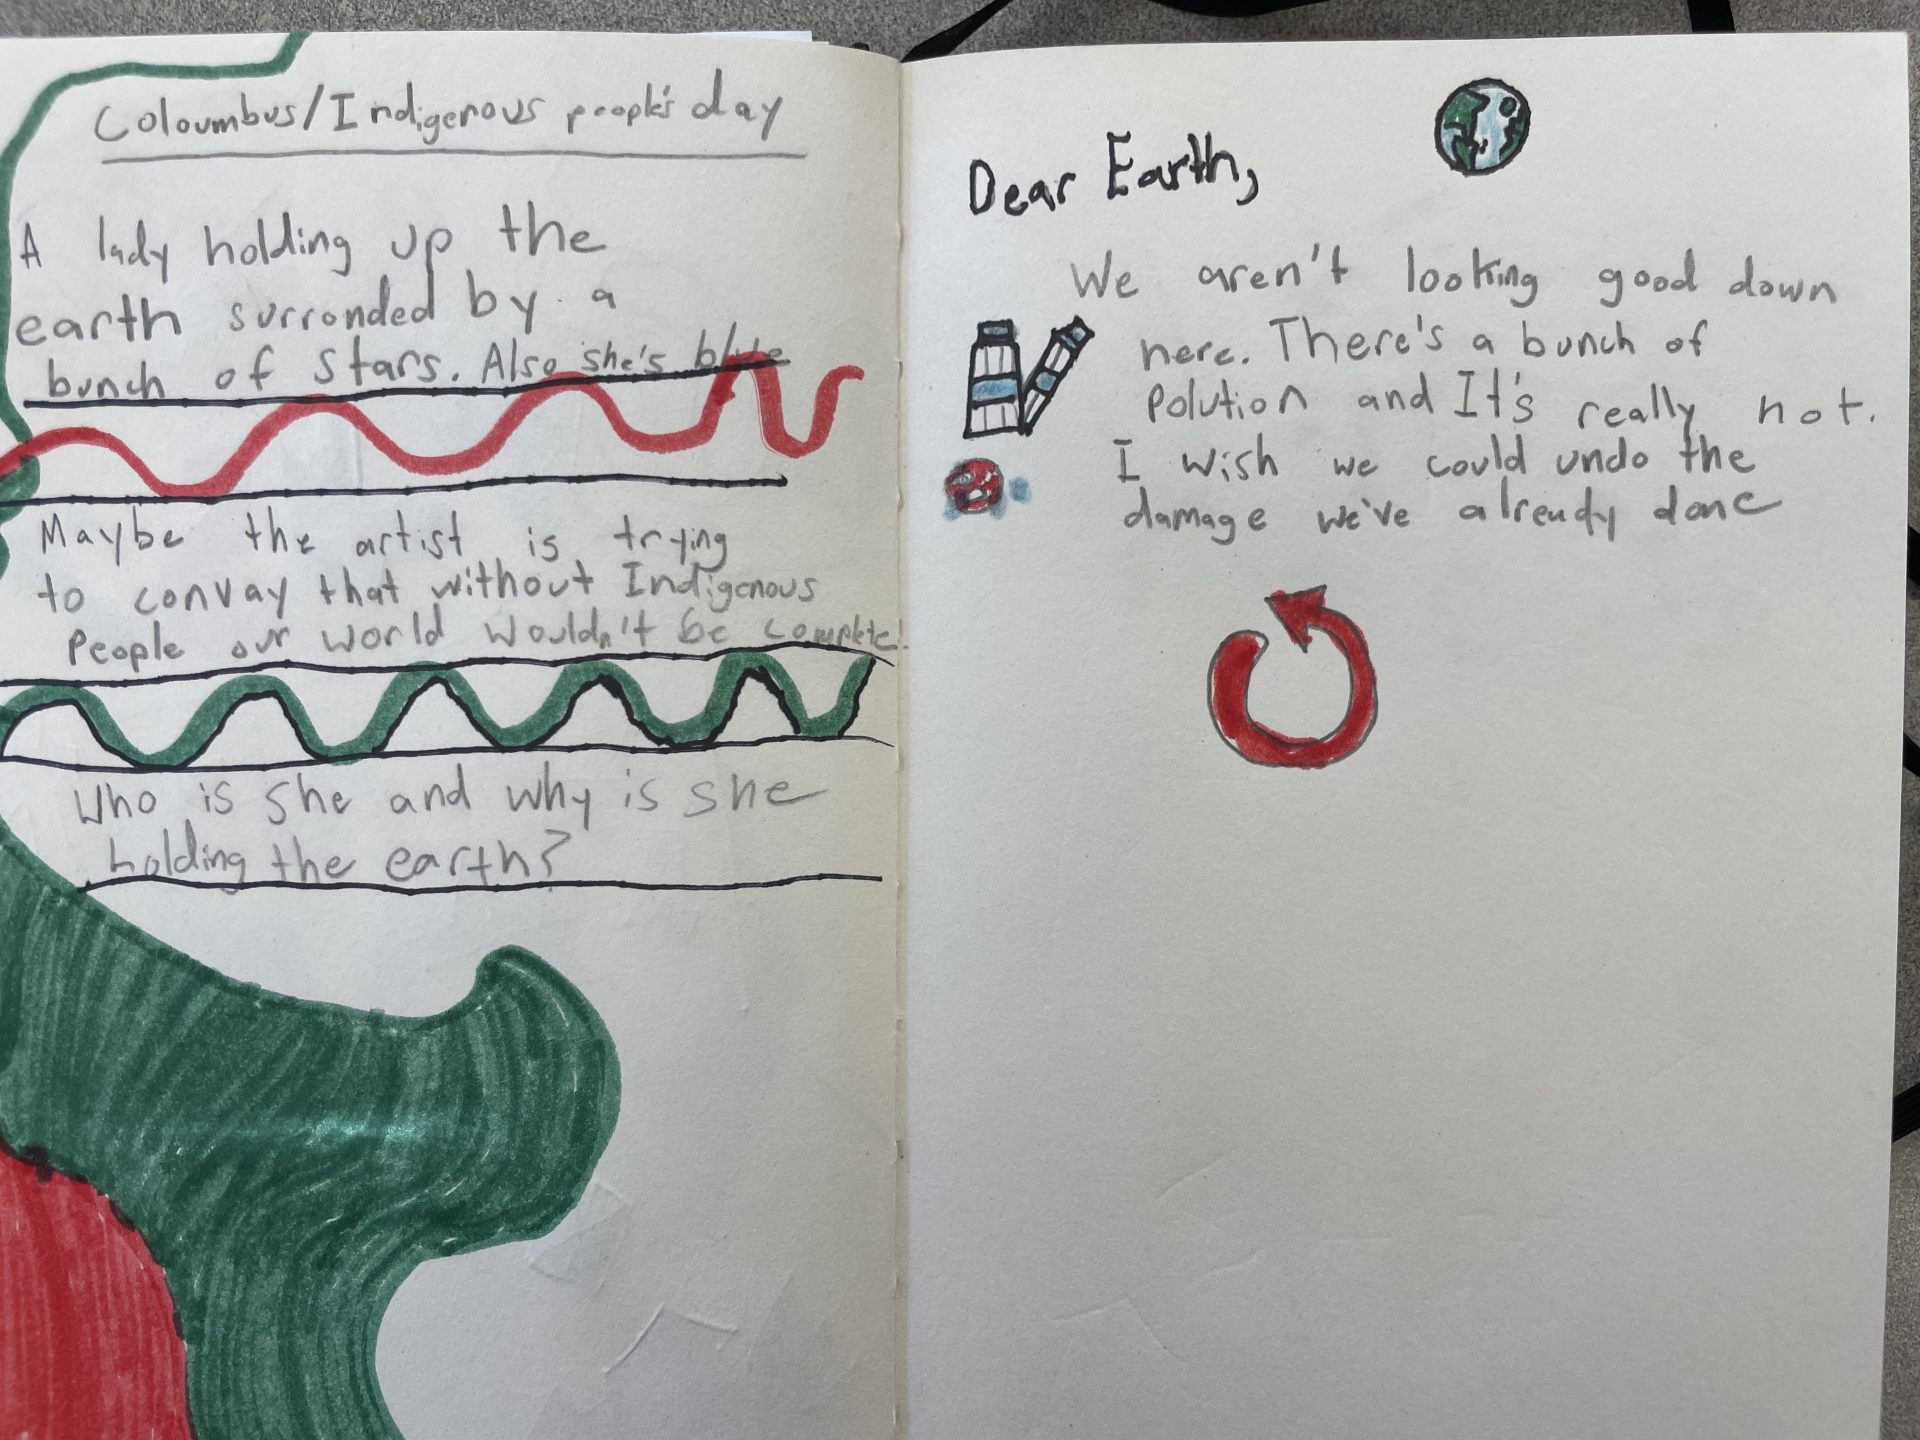 Coloumbus/Indigenous people's day
A lady holding up the
earth surronded by a
bunch of stars. Also she's blue
Maybe the artist is trying
to convay that without Indigenous
People our world wouldn't be complete.
Who is she and why is she
holding the earth?
Dear Earth,
We aren't looking good down
here. There's a bunch of
Polution and It's really not.
I wish we could undo the
damage we've already done